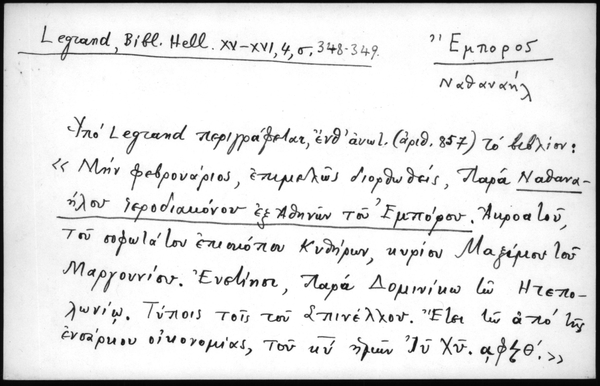 Legrand, Bibl. Hell. XV-XVI, 4, σ, 348-349.
Ἔμπορος
Ναθαναήλ
Ὑπό Legrand περιγράφεται, ἔνθ' ἀνωτ. (ἀριθ. 857) τό βιβλίον:
«Μήν φεβρουάριος, ἐπιμελῶς διορθωθείς, Παρά Ναθανα-
ήλου ἱεροδιακόνου ἐξ Ἀθηνῶν τοῦ Ἐμπόρου. Ἀκροατοῦ,
τοῦ σοφωτάτου ἐπισκόπου Κυθήρων, κυρίου Μαξίμου τοῦ
Μαργουνίου. Ἐνετίησι, Παρά Δομινίκω τῶ Ητεπο-
λωνίῳ. Τύποις τοῖς τοῦ Σπινέλλου. Ἔτει τῶ ἀπό τῆς
ἐνσάρκου οἰκονομίας, τοῦ κῦ ἡμῶν Ἰῦ Χῦ. αφϟθ΄.»